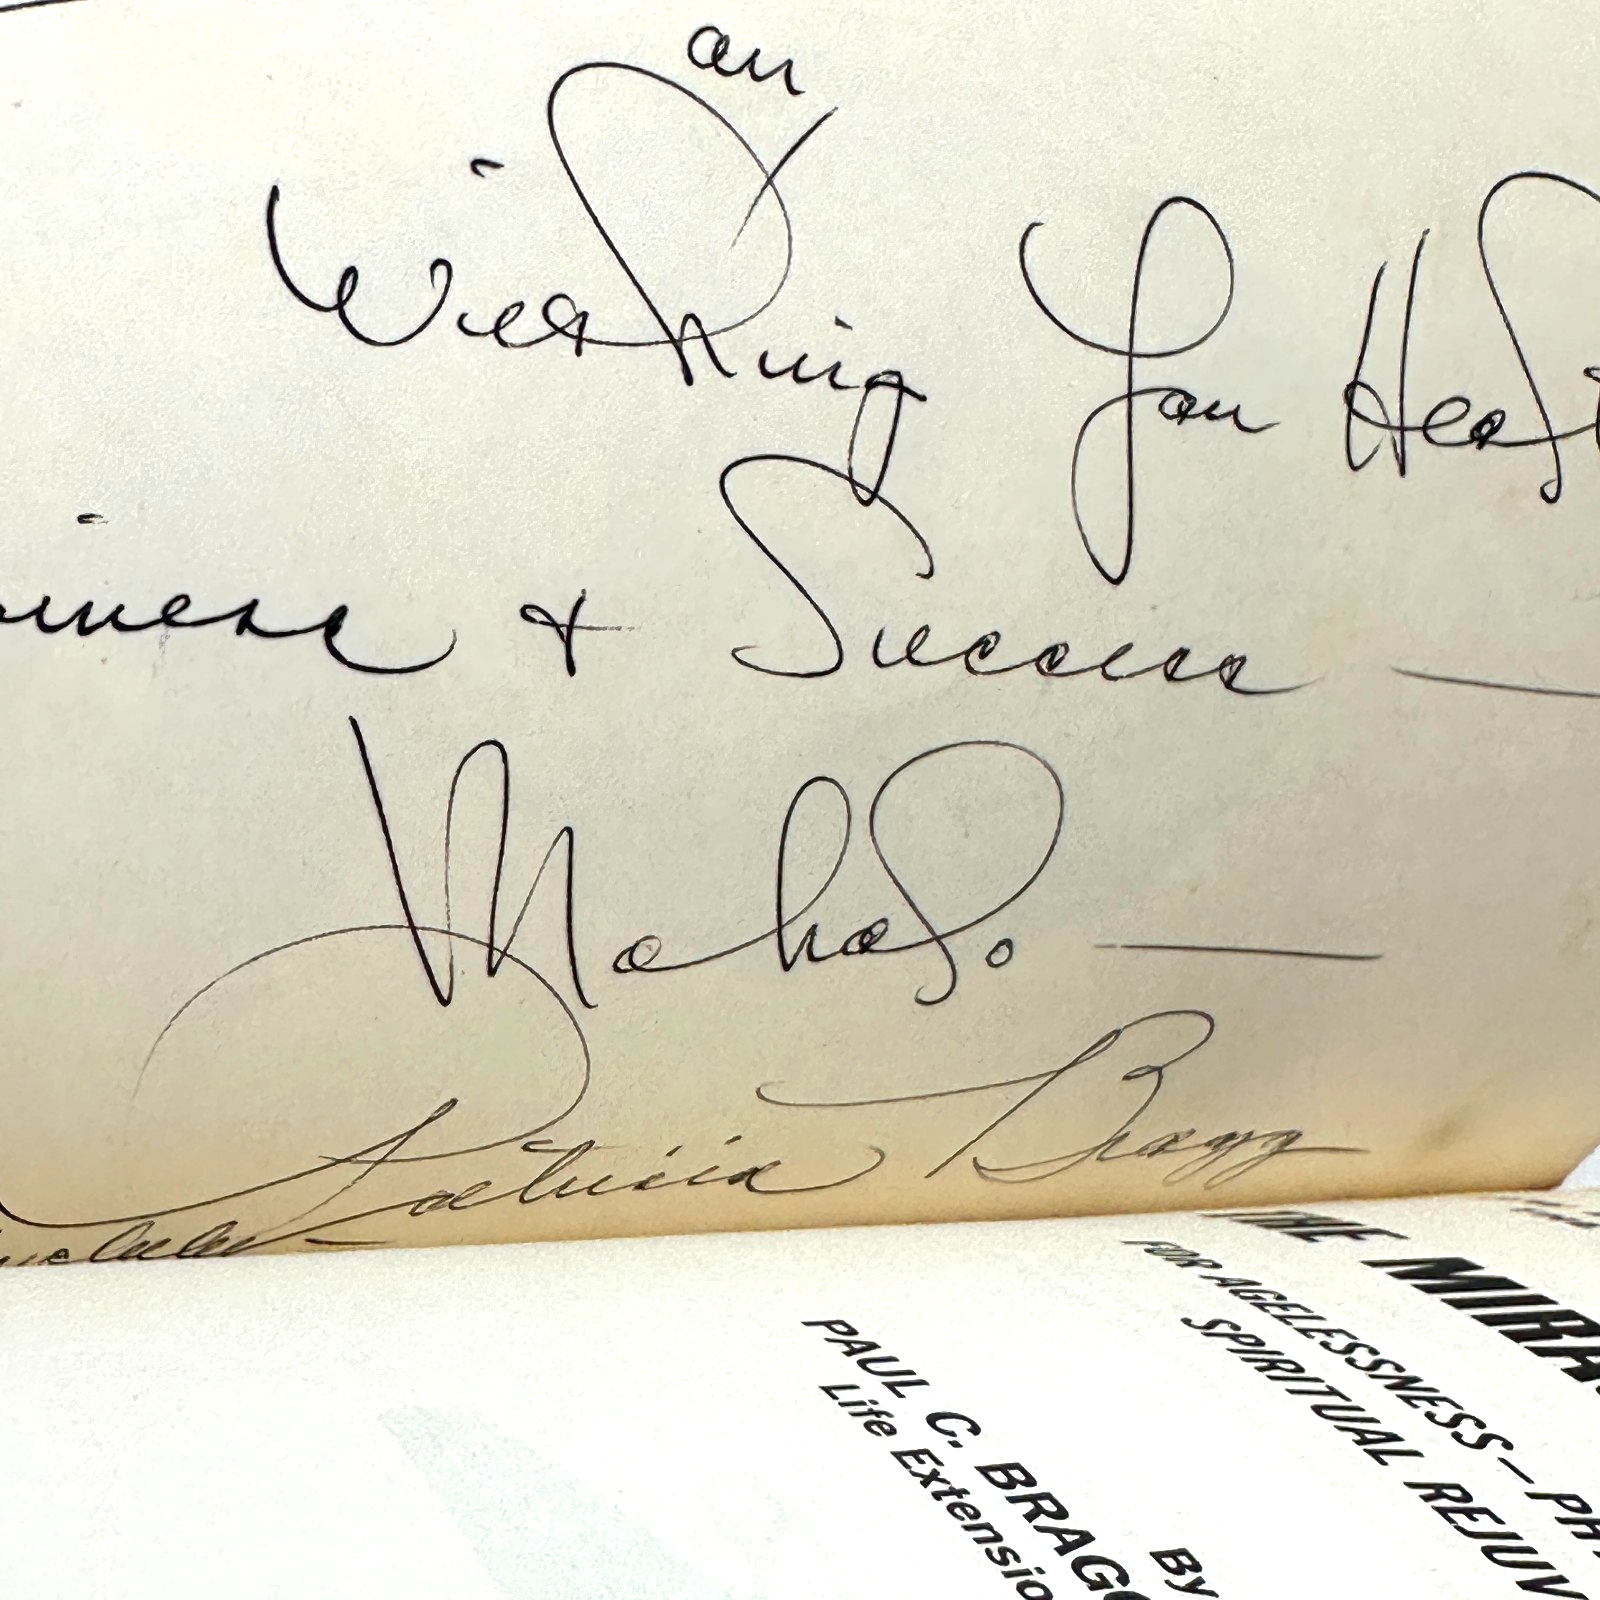 Wishing You Healt
piness & Success —
Mahalo. —
Patricia Bragg
THE MIRA
FOR AGELESSNESS—PH
SPIRITUAL REJUV
By
PAUL C. BRAGG
Life Extensio